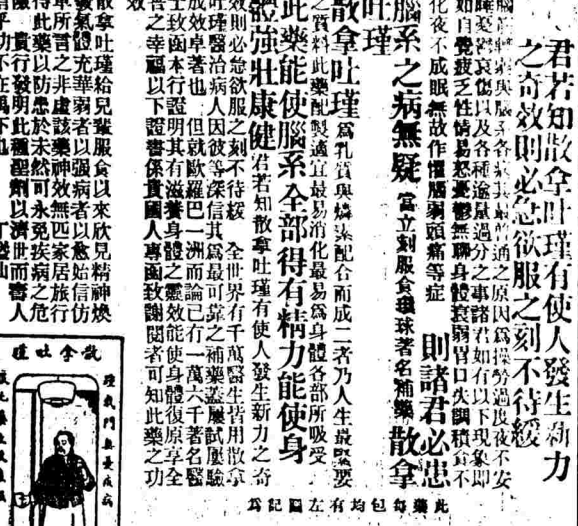 君若知散拿吐瑾有使人發生新力
之奇效則必急欲服之刻不待緩
腦
睡憂鬱哀傷以及各種逾量過分之事諸君如有以下現象即
如自覺疲乏性情易怒憂鬱無聊身體衰弱胃口失調積食不
化夜不成眠無故作懼腦弱頭痛等症
則諸君必患
腦系之病無疑
當立刻服食環球著名補藥
散拿
吐瑾
散拿吐瑾
為乳質與燐素配合而成二者乃人生最緊要
之質料此藥配製適宜最易消化最易為身體各部所吸受
此藥能使腦系全部得有精力能使身
體強壯康健
君若知散拿吐瑾有使人發生新力之奇
效則必急欲服之刻不待緩
全世界有千萬醫生皆用散拿
吐瑾醫治病人因彼等深信其為最可靠之補藥蓋屢試屢驗
成效卓著也
但就歐羅巴一洲而論已有一萬六千著名醫
士致函本行證明其有滋養身體之靈效能使身體復原享全
善之幸福以下證書係貴國人專函致謝閱者可知此藥之功
效
散拿吐瑾給兒輩服食以來欣見精神煥
發氣體充華弱者以強病者以愈始信仿
單所言之非虛該藥神效無匹家居旅行
得此藥以防患於未然可永免疾病之危
險
貴行發明此種聖劑以濟世而壽人
功不在禹下也
此藥每包均有左圖記為
散拿吐瑾